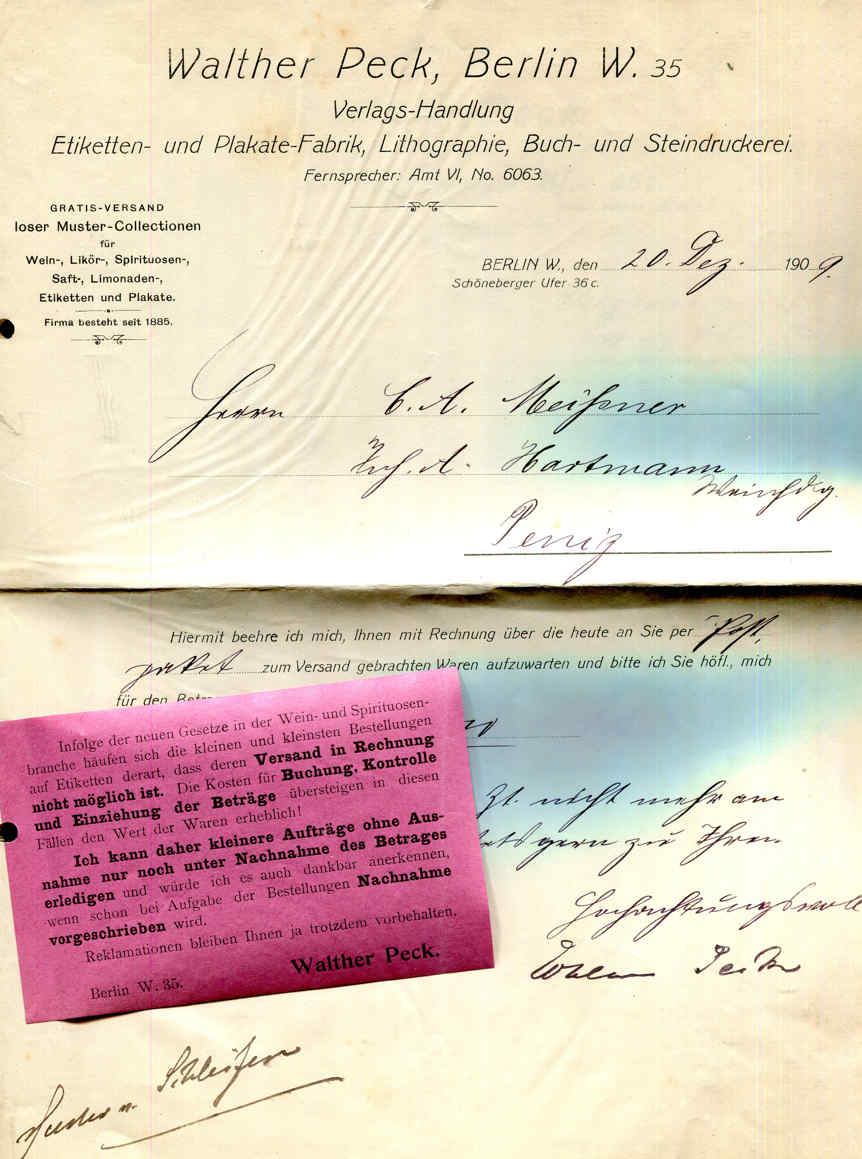 Walther Peck, Berlin W. 35
Verlags-Handlung
Etiketten- und Plakate-Fabrik, Lithographie, Buch- und Steindruckerei.
Fernsprecher: Amt VI, No. 6063.
GRATIS-VERSAND
loser Muster-Collectionen
für
Wein-, Likör-, Spirituosen-,
Saft-, Limonaden-,
Etiketten und Plakate.
Firma besteht seit 1885.
BERLIN W., den 20. Dez. 1909.
Schöneberger Ufer 36 c.
Herrn C. A. Meißner
Inh. A. Hartmann
Weinhdlg.
Penig
Hiermit beehre ich mich, Ihnen mit Rechnung über die heute an Sie per Post,
paket zum Versand gebrachten Waren aufzuwarten und bitte ich Sie höfl., mich
für den
Infolge der neuen Gesetze in der Wein- und Spirituosen-
branche häufen sich die kleinen und kleinsten Bestellungen
auf Etiketten derart, dass deren Versand in Rechnung
nicht möglich ist. Die Kosten für Buchung, Kontrolle
und Einziehung der Beträge übersteigen in diesen
Fällen den Wert der Waren erheblich!
Ich kann daher kleinere Aufträge ohne Aus-
nahme nur noch unter Nachnahme des Betrages
erledigen und würde ich es auch dankbar anerkennen,
wenn schon bei Aufgabe der Bestellungen Nachnahme
vorgeschrieben wird.
Reklamationen bleiben Ihnen ja trotzdem vorbehalten.
Walther Peck.
Berlin W. 35.
zt. nicht mehr am
gern zu Ihren
Hochachtungsvoll
Walther Peck
Schleifen